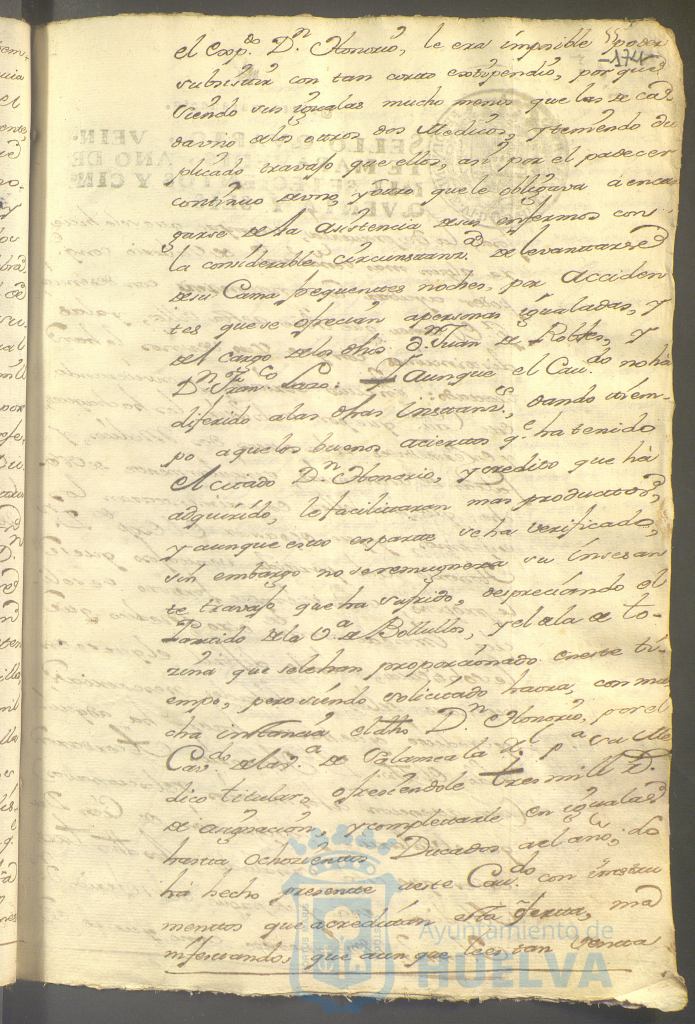 el Exp.do D.n Honorio, le era imposible poder
-174-
subsistir con tan corto extipendio, porque
siendo sus igualas mucho menos que las de ca-
da uno de los otros dos Medicos, y teniendo du-
plicado travajo que ellos, asi por el padecer
continuo de uno, y otro que le obligava á encar-
garse de la asistencia de sus enfermos con
la considerable circunstanz.a de levantarse
de su Cama frequentes noches, por acciden-
tes que se ofrecian a personas igualadas, y
del cargo de los dhos D.n Juan de Robles, y
D.n Fran.co Lazo. Y aunque el Cav.do no ha
diferido a las dhas instanz.s, dando tiem-
po a que los buenos aciertos q.e ha tenido
el citado D.n Honorio, y credito que há
adquirido, le facilitaran mas productos,
y aunque esto en parte se ha verificado,
sin embargo no se remunera su incesan-
te travajo que ha sufrido, despreciando el
Partido de la V.a de Bollullos, y el de la de
que se le han proporcionado en este ti-
empo, pero siendo solicitado haora, con mu-
cha instancia el dho D.n Honorio, por el
Cav.do de la V.a de Zalamea la R.l p.a su Me-
dico titular, ofreciendole tres mill R.
de asignacion, y completarle en igualas
hasta ochozientos Ducados al año; lo
há hecho presente a este Cav.do con instru-
mentos que acreditan esta oferta, ma-
nifestando, que aunque le es tan
Ayuntamiento de
HUELVA